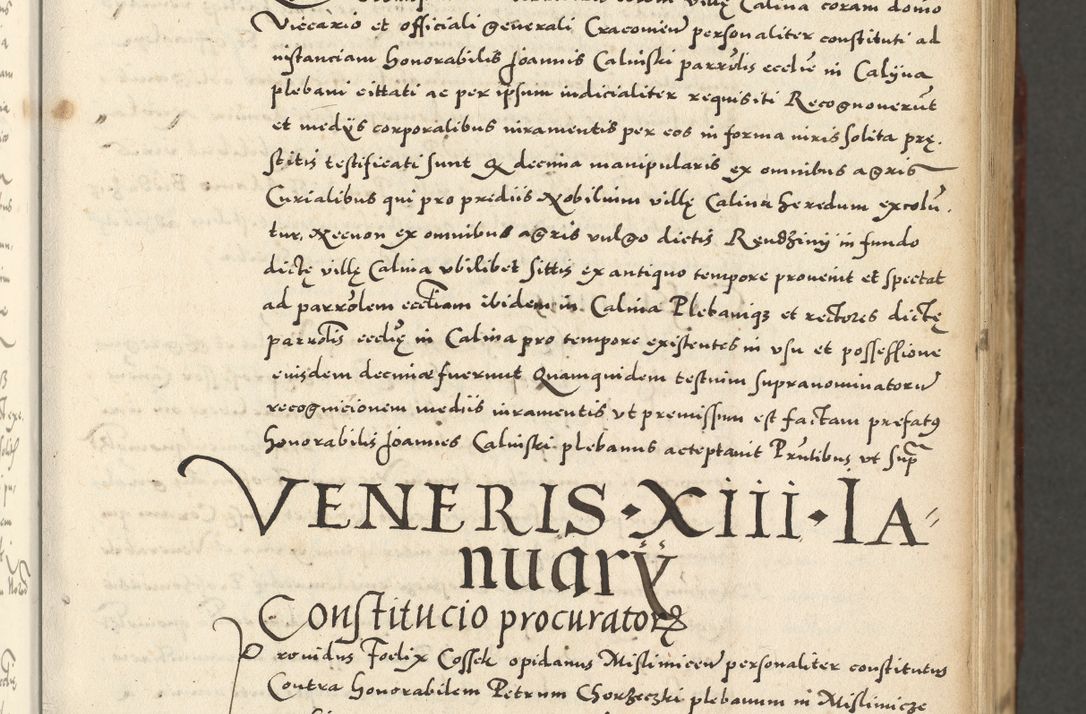 villę Calina coram domo
Viccario et officiali generali Cracovien personaliter constituti ad
instanciam honorabilis Joannis Calinski parrolis ecclie in Calina
plebani cittati ac per ipsum iudicialiter requisiti Recognoverut
et medijs corporalibus iuramentis per eos in forma iuris solita prę.
stitis testificati sunt Q decima manipularis ex omnibus agris
Curialibus qui pro prediis Nobilium villę Calina heredum excolu.
tur, Necnon ex omnibus agris vulgo dictis Rendziny in fundo
dictę villę Calina vbilibet sittis ex antiquo tempore provenit et spectat
ad parrolem ecctiam ibidem in Calina Plebaniqz et rectores dictę
parrolis ecclię in Calina pro tempore existentes in vsu et possessione
eiusdem decimæ fuerunt Quamquidem testium supranominatoru
recognicionem mediis iuramentis vt premissum est factam prefatq
honorabilis Joannes Calinski plebanus acceptavit Prntibus vt supra
VENERIS · XIII · IA
nuarÿ
Constitucio procuratorę
Providus Foelix Cossek opidanus Mislimicen personaliter constitutus
Contra honorabilem Petrum Chorzeczki plebanum in Mislimicze